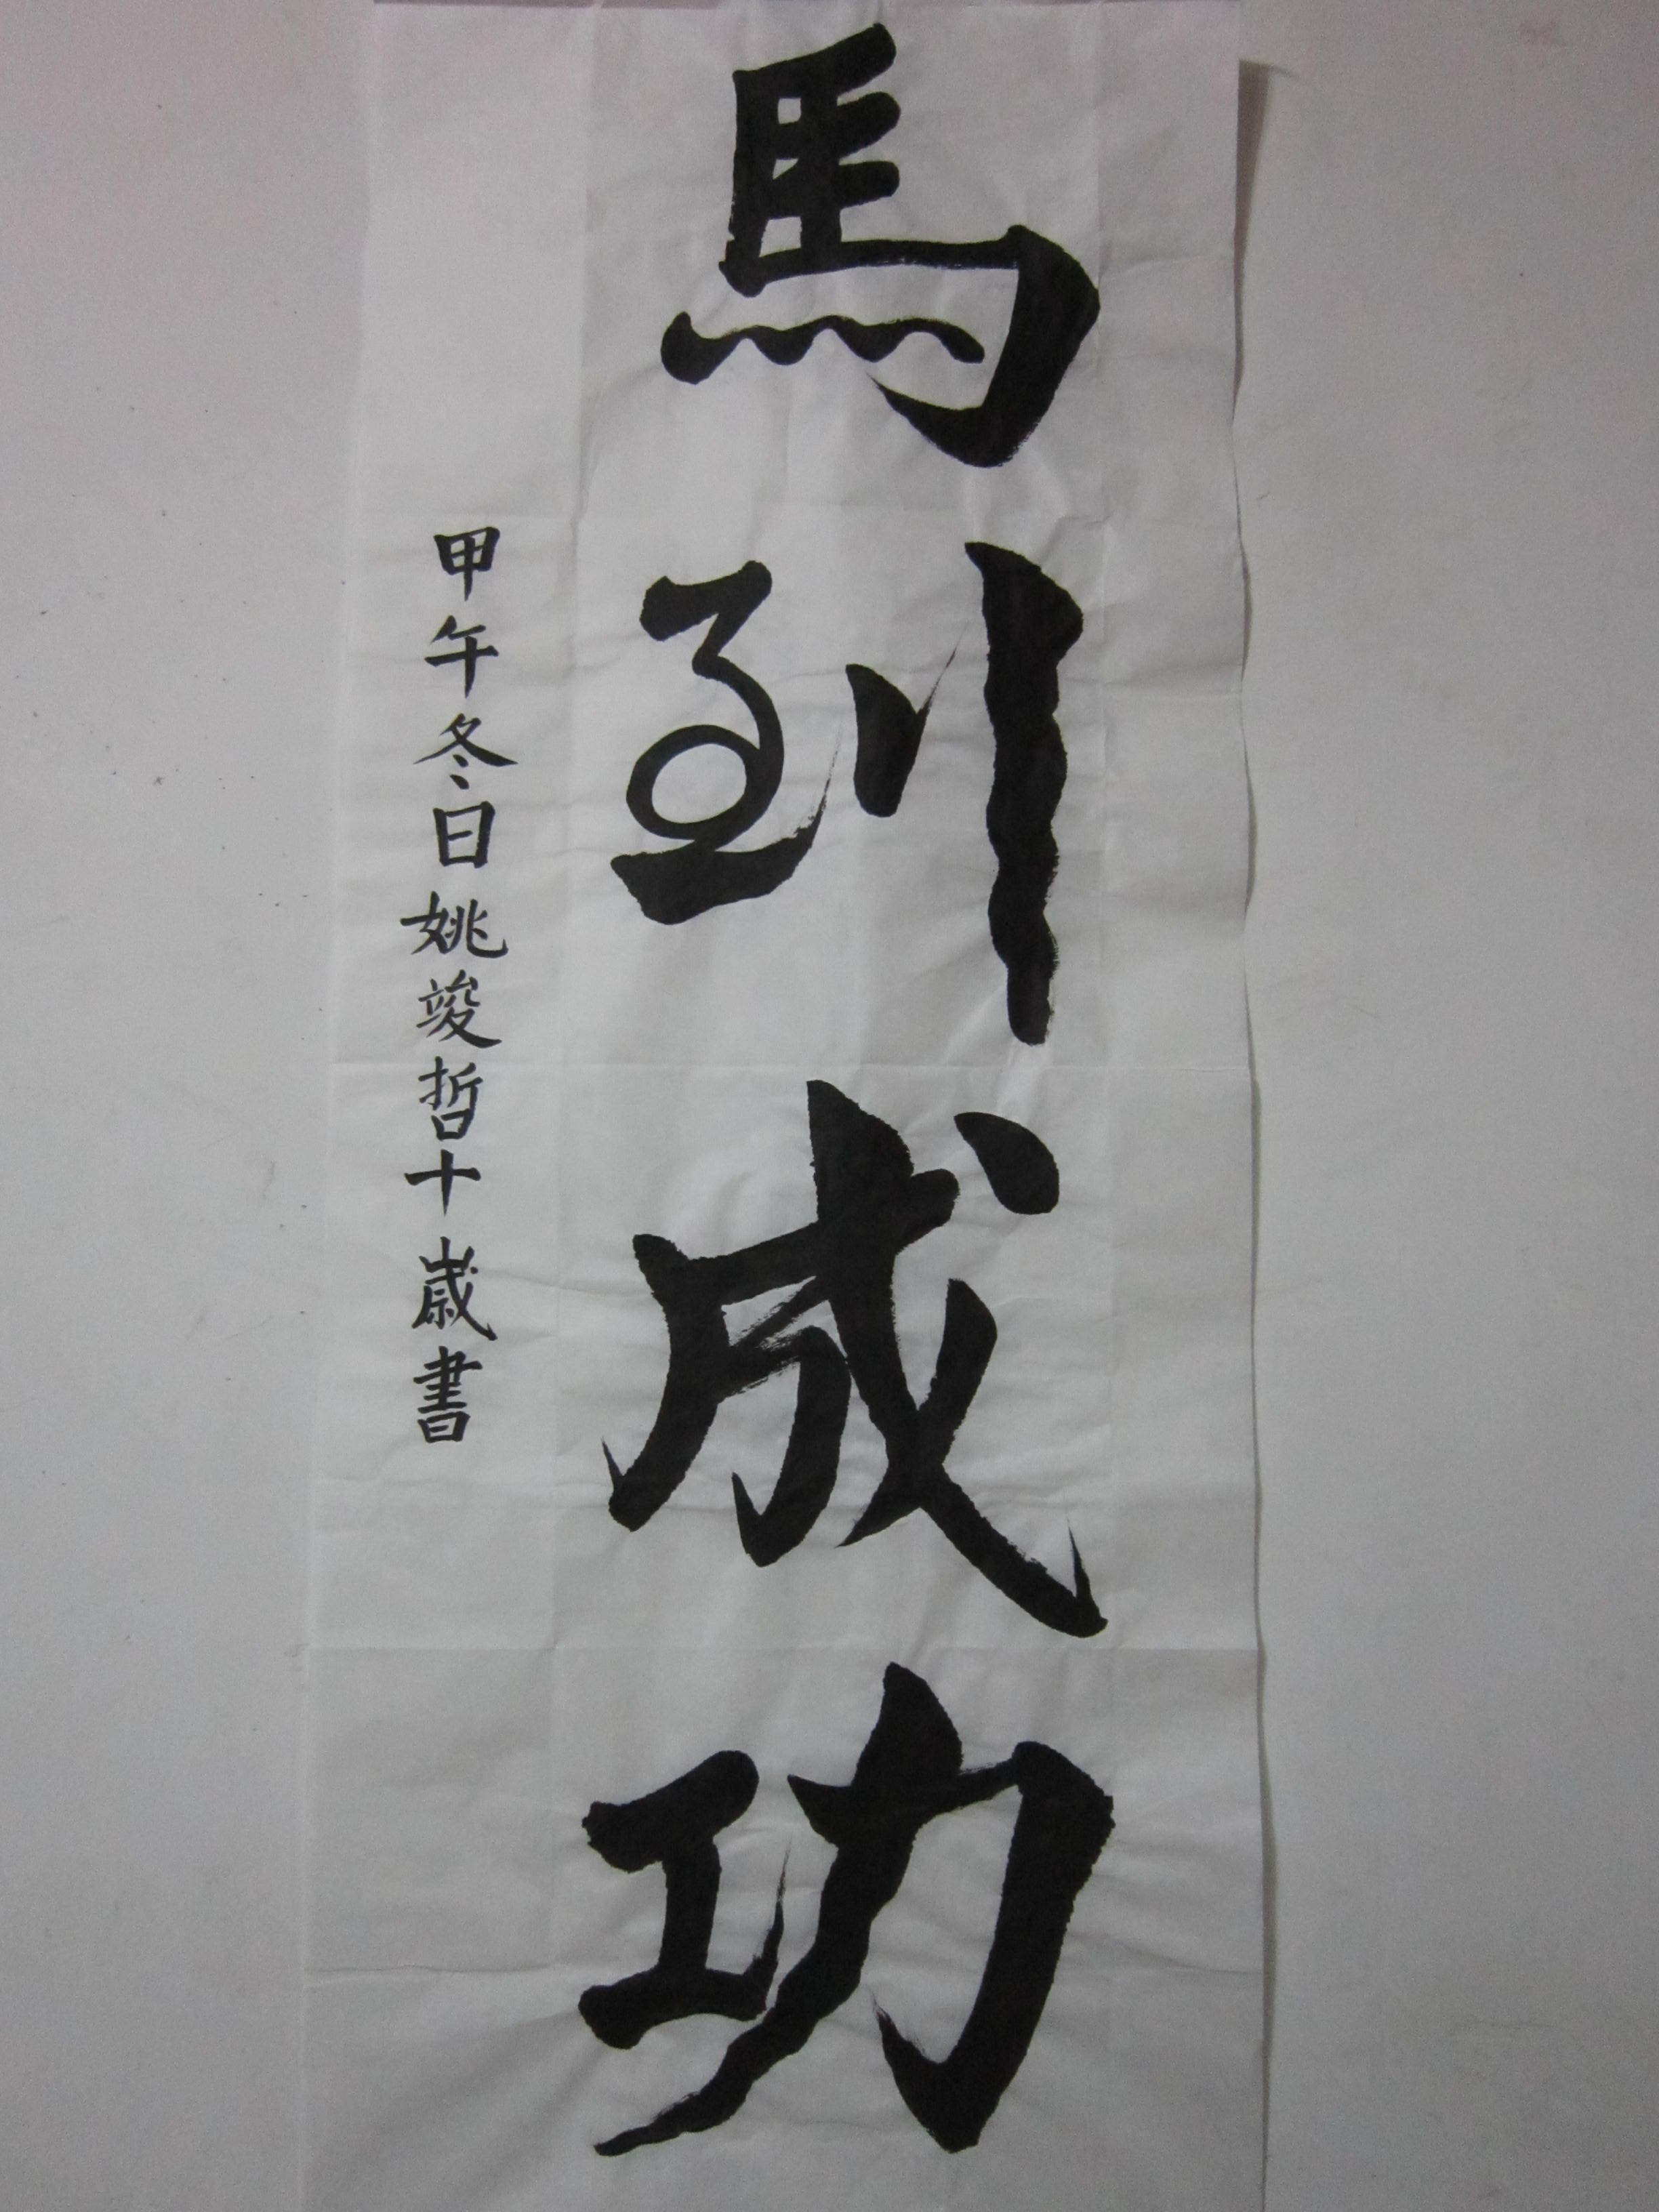 馬到成功
甲午冬日姚竣哲十歳書